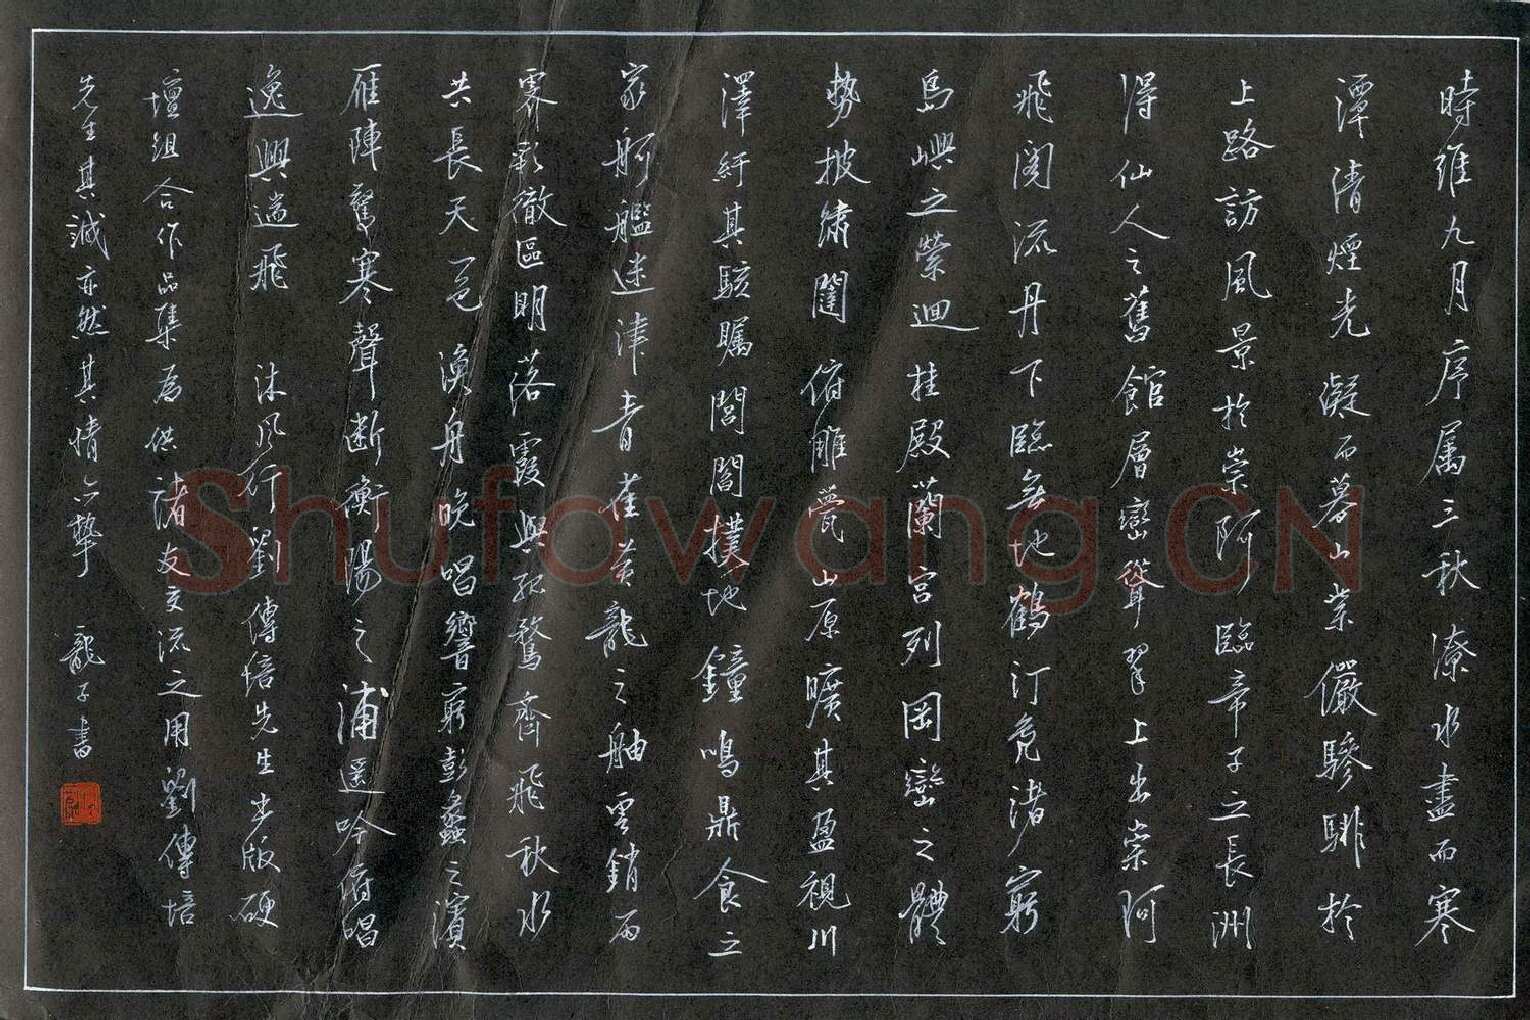 時維九月序属三秋潦水盡而寒
潭清煙光凝而暮山紫儼驂騑於
上路訪風景於崇阿臨帝子之長洲
得仙人之舊館層巒聳翠上出崇阿
飛閣流丹下臨無地鶴汀凫渚窮
島嶼之縈迴桂殿蘭宫列岡巒之體
勢披繡闥俯雕甍山原曠其盈視川
澤紆其駭矚閭閻撲地鐘鳴鼎食之
家舸艦迷津青雀黄龍之舳雲銷雨
霽彩徹區明落霞與孤鶩齊飛秋水
共長天一色漁舟晚唱響窮彭蠡之濱
雁陣驚寒聲断衡陽之浦遥吟俯唱
逸興遄飛 沐風行劉傳培先生出版硬
壇組合作品集為供諸友交流之用劉傳培
先生其誠亦然其情亦摯 龍子書
Shufawang.CN